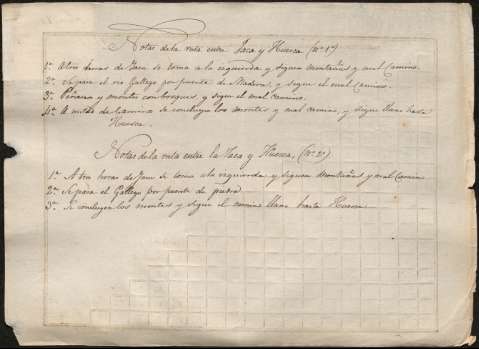 Notas de la ruta entre Jaca y Huesca (nº 1º)
1ª A dos horas de Jaca se toma a la izquierda y siguen montañas y mal camino.
2ª Se pasa el rio Gallego por puente de Madera y sigue el mal camino.
3ª y montes con bosques, y sigue el mal camino.
4ª A mitad de camino se concluyen los montes y mal camino, y sigue llano hasta
Huesca.
Notas de la ruta entre la Jaca y Huesca, (nº 2º)
1ª A tres horas de Jaca se toma a la izquierda y siguen montañas y mal camino
2ª Se pasa el Gallego por puente de piedra
3ª Se concluyen los montes y sigue el camino llano hasta Huesca